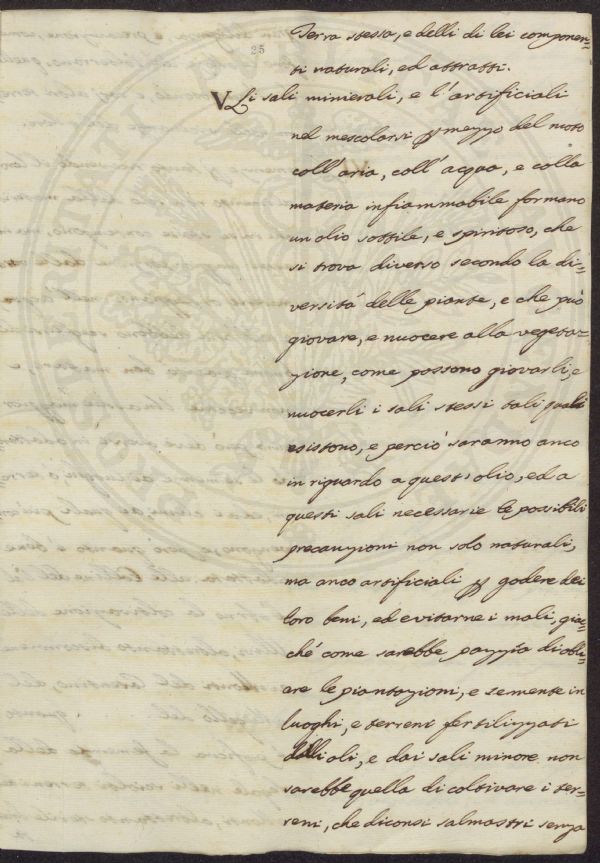 25
Terra stessa, e delli di lei componen=
ti naturali, ed attratti.
V Li sali minerali, e l'artificiali
nel mescolarsi p mezzo del moto
coll'aria, coll'acqua, e colla
materia infiammabile formano
un olio sottile, e spiritoso, che
si trova diverso secondo la di=
versitá delle piante, e che può
giovare, e nuocere alla vegeta=
zione, come possono giovarli, e
nuocerli i sali stessi tali quali
esistono, e perciò saranno anco
in riguardo a quest'olio, ed a
questi sali necessarie le possibili
precauzioni non solo naturali,
ma anco artificiali p godere dei
loro beni, ed evitarne i mali, giac=
ché come sarebbe pazzia di obli=
are le piantazioni, e semente in
luoghi, e terreni fertilizzati
dalli oli, e dai sali minore non
sarebbe quella di coltivare i ter=
reni, che diconsi salmastri senza